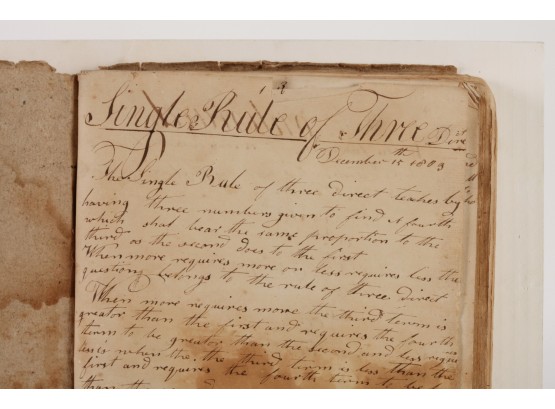 Single Rule of Three Dire
December 15th 1803
The Single Rule of three direct teaches by
having three numbers given to find a fourth
which shal bear the same proportion to the
third as the second does to the first
When more requires more or less requires less the
question belongs to the rule of three direct
When more requires more the third term is
greater than the first and requires the fourth
term to be greater than the second and less requi
less is when the the third term is less than the
first and requires the fourth term to be
than the